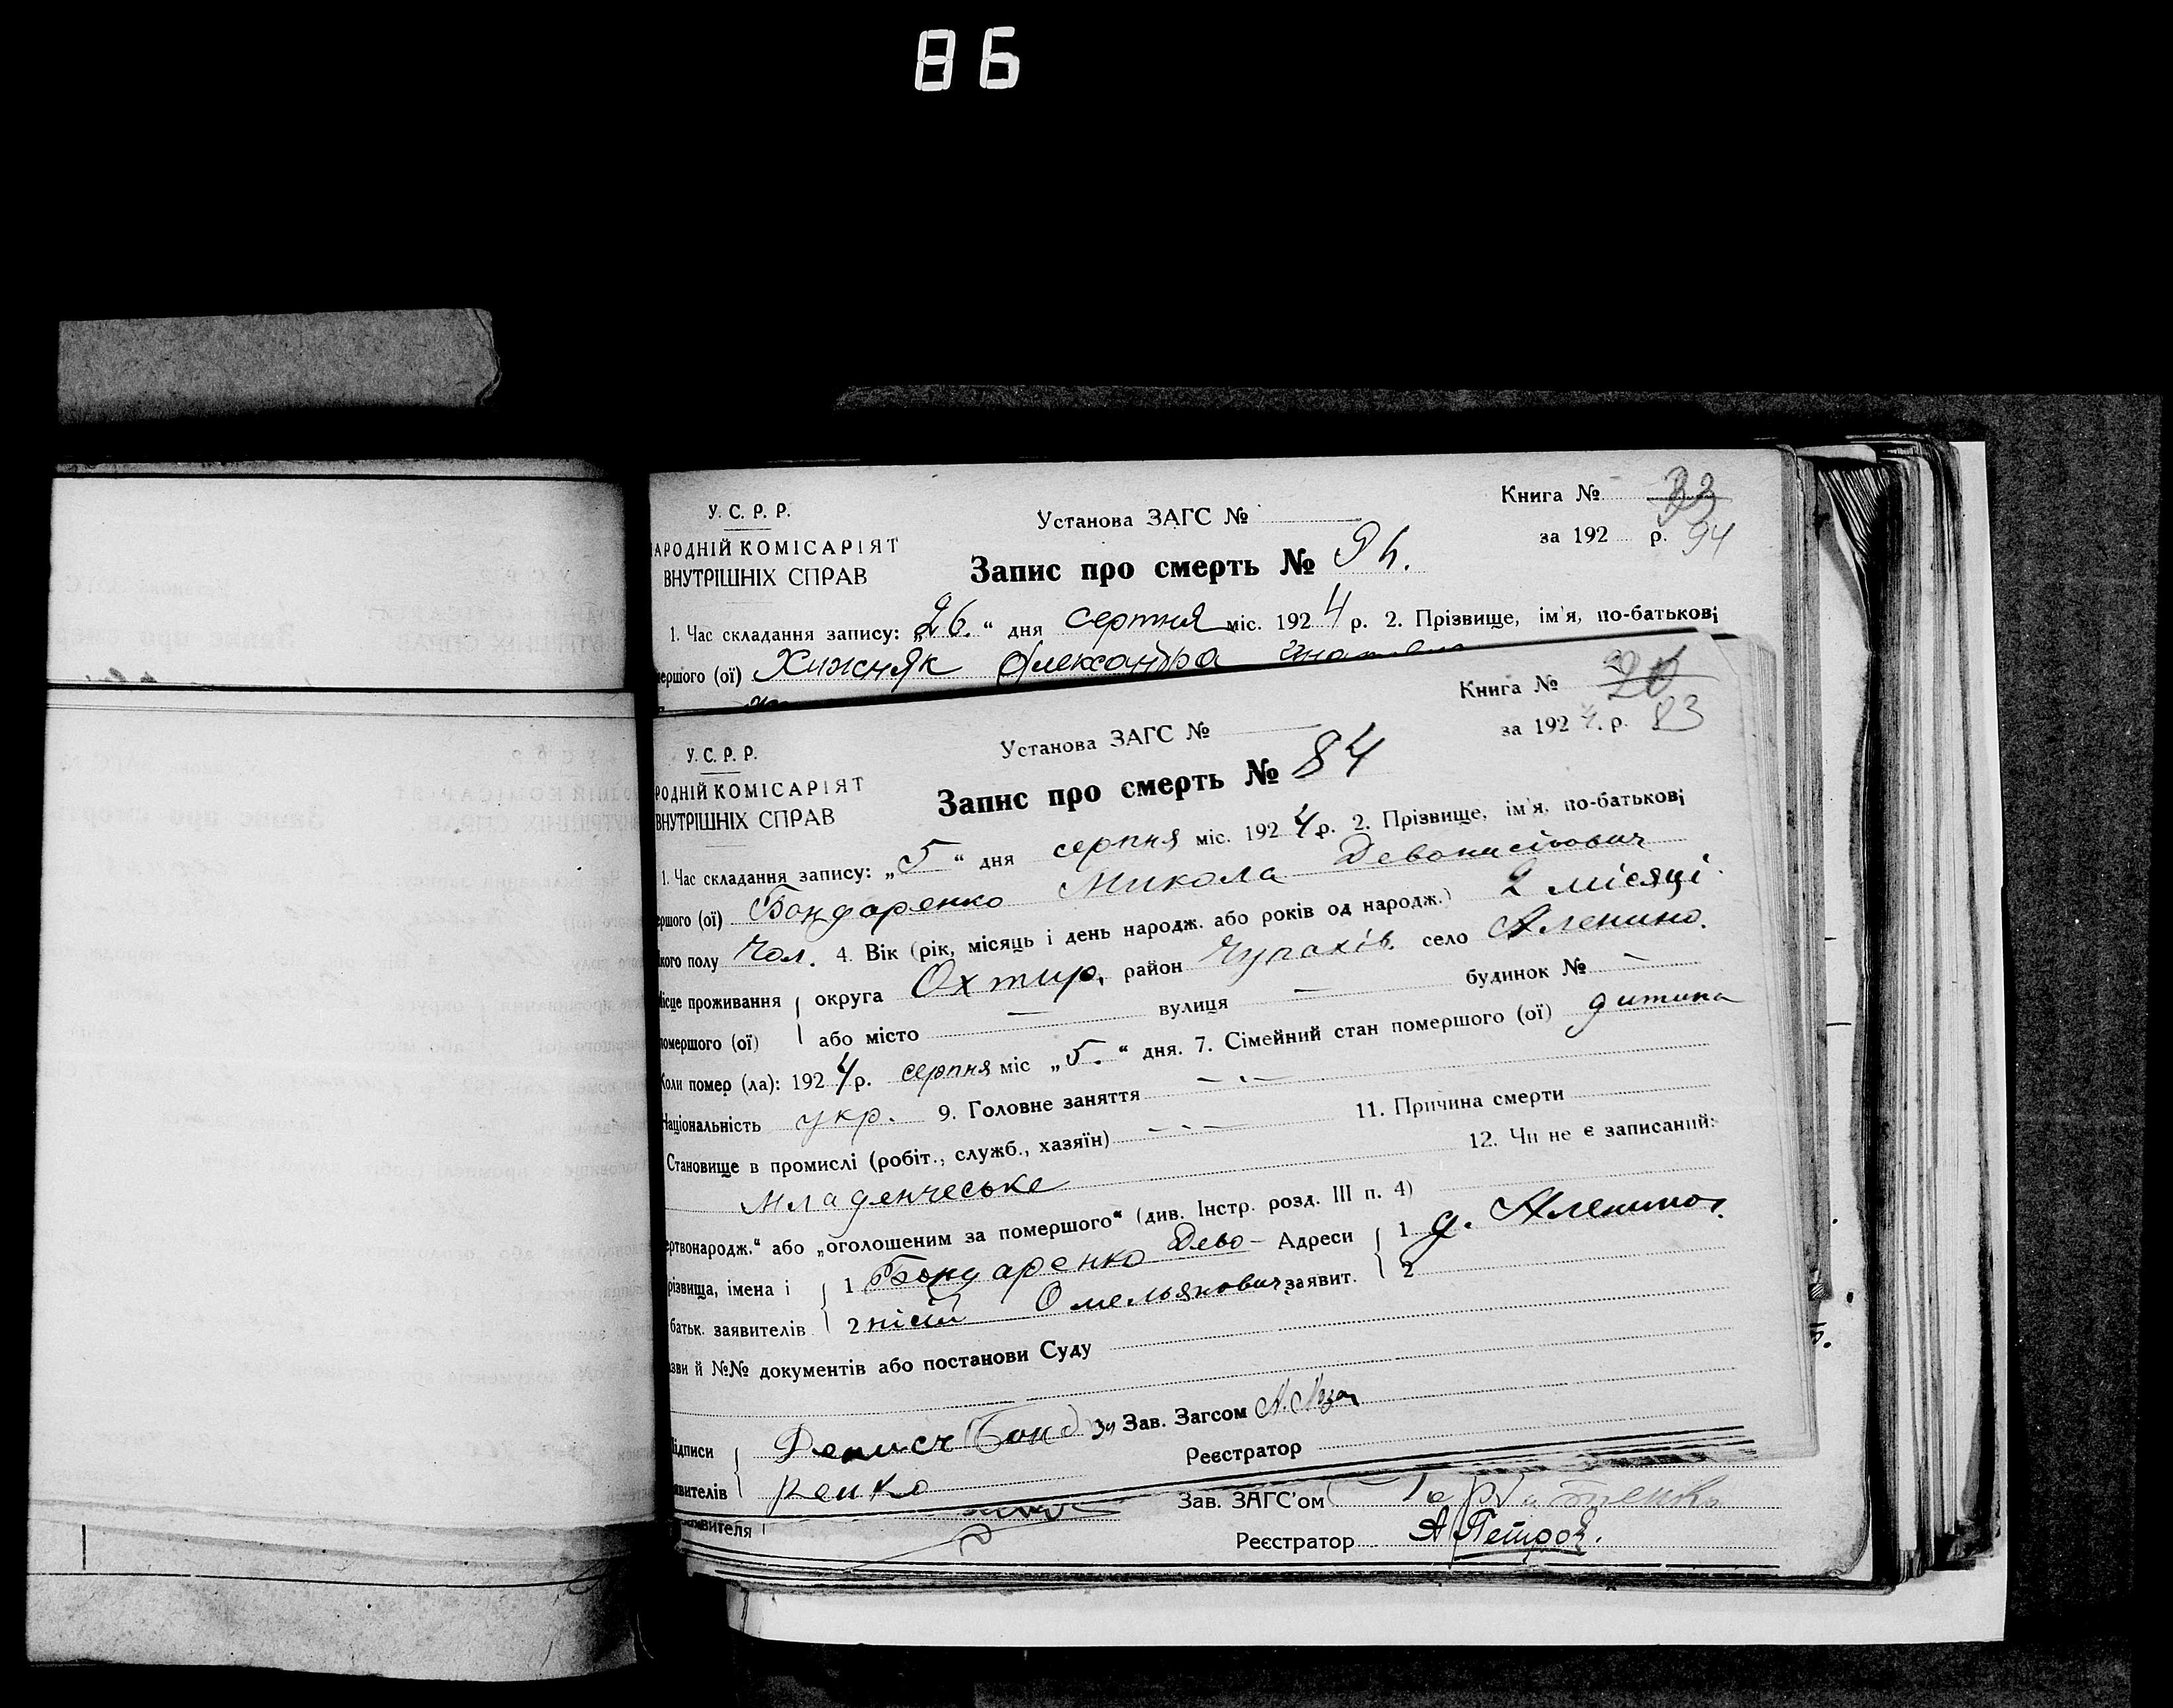 86
Книга № 33
У. С. Р. Р.
Установа ЗАГС №
за 192 р. 94
АРОДНІЙ КОМІСАРІЯТ
ВНУТРІШНІХ СПРАВ
Запис про смерть № 94.
1. Час складання запису: „26.“ дня серпня міс. 1924 р. 2. Прізвище, ім'я, по-батькові
ершого (ої) Хижняк Олександра
Книга № 20
У. С. Р. Р.
Установа ЗАГС №
за 1924. р. 83
РОДНІЙ КОМІСАРІЯТ
ВНУТРІШНІХ СПРАВ
Запис про смерть № 84
1. Час складання запису: „5“ дня серпня міс. 1924 р. 2. Прізвище, ім'я, по-батькові
ршого (ої) Бондаренко Микола Девонисійович
кого полу Чол. 4. Вік (рік, місяць і день народж. або років од народж.) 2 місяці
ісце проживання округа Охтир. район Чупахів. село Аленино.
омершого (ої) або місто — вулиця — будинок № —
Коли помер (ла): 1924 р. серпня міс „5.“ дня. 7. Сімейний стан помершого (ої) дитина
Національність укр. 9. Головне заняття — . —
Становище в промислі (робіт., служб., хазяїн) — . — 11. Причина смерти
Младенческе 12. Чи не є записаний:
ертвонародж.“ або „оголошеним за помершого“ (див. Інстр. розд. III п. 4)
різвища, імена і 1 Бондаренко Дево- Адреси 1 д. Аленино.
батьк. заявителів 2 нісій Омельянович заявит. 2
зви й №№ документів або постанови Суду
ідписи Денисъ Бонд Зав. Загсом
явителів ренко Реєстратор
вителя Зав. ЗАГС'ом
Реєстратор А Петров.